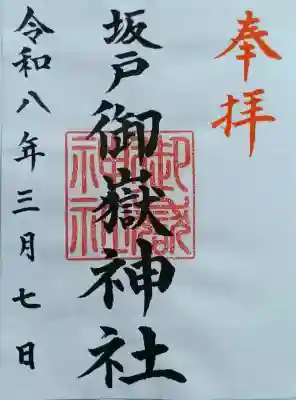 奉拝
坂戸御嶽神社
御嶽神社
令和八年三月七日